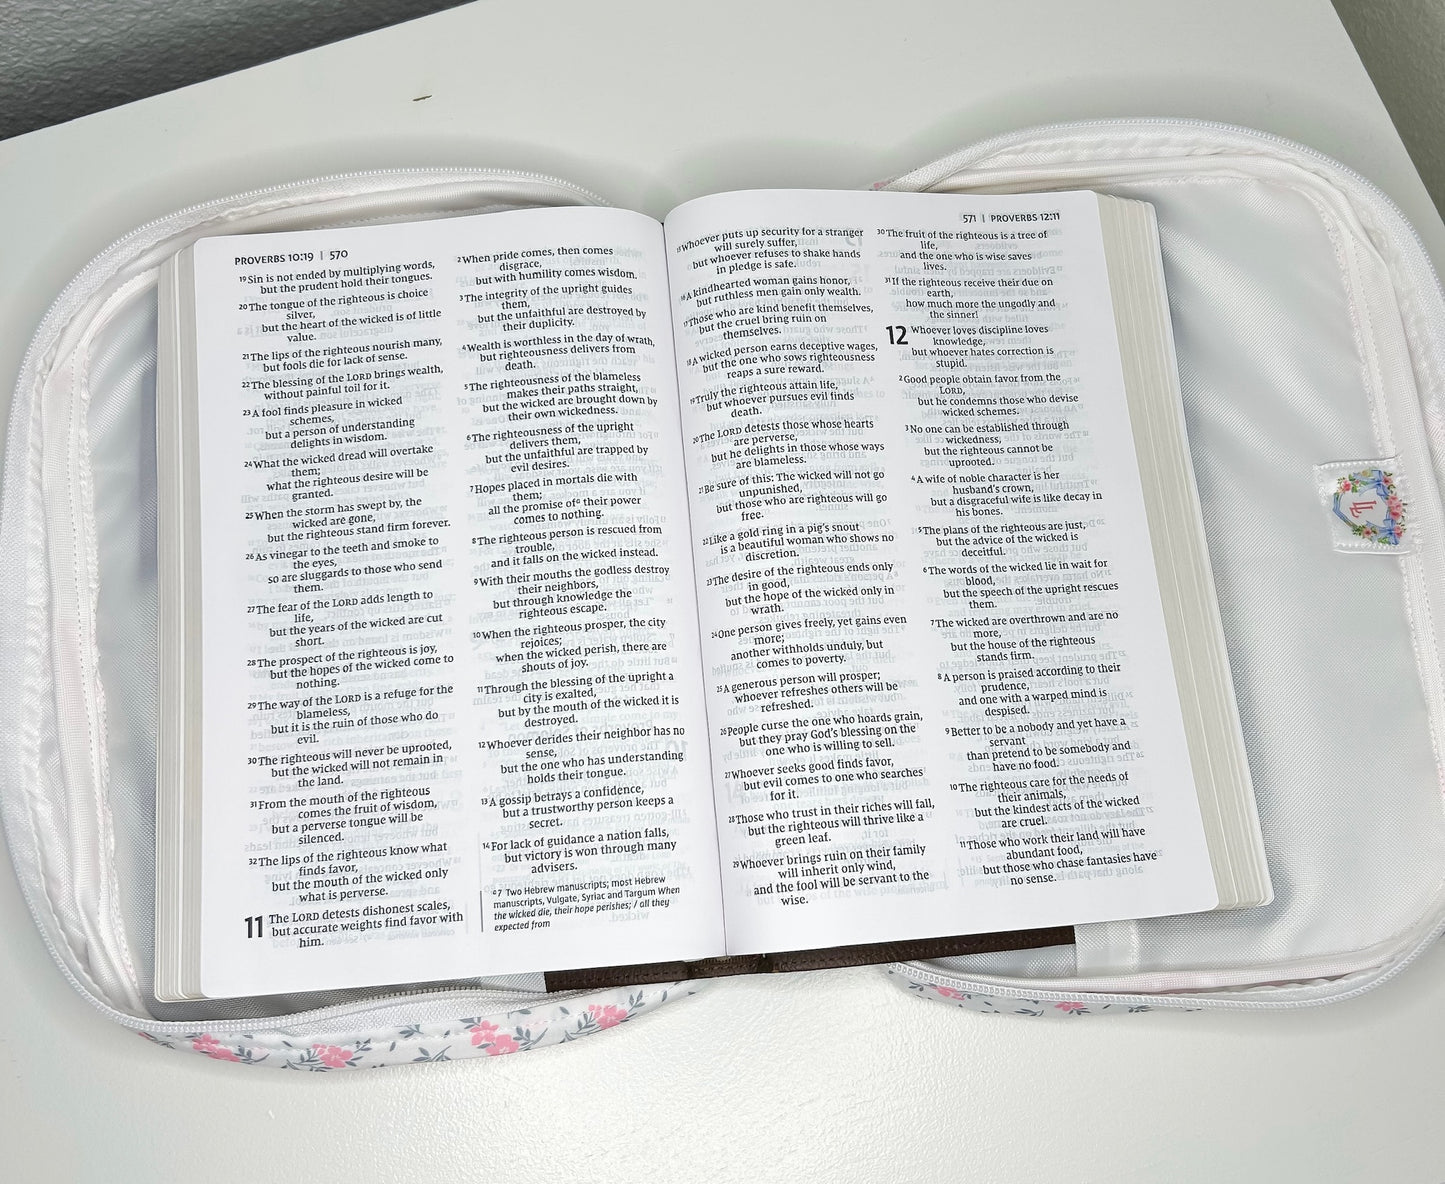 PROVERBS 10:19 | 570
19 Sin is not ended by multiplying words,
but the prudent hold their tongues.
20 The tongue of the righteous is choice
silver,
but the heart of the wicked is of little
value.
21 The lips of the righteous nourish many,
but fools die for lack of sense.
22 The blessing of the LORD brings wealth,
without painful toil for it.
23 A fool finds pleasure in wicked
schemes,
but a person of understanding
delights in wisdom.
24 What the wicked dread will overtake
them;
what the righteous desire will be
granted.
25 When the storm has swept by, the
wicked are gone,
but the righteous stand firm forever.
26 As vinegar to the teeth and smoke to
the eyes,
so are sluggards to those who send
them.
27 The fear of the LORD adds length to
life,
but the years of the wicked are cut
short.
28 The prospect of the righteous is joy,
but the hopes of the wicked come to
nothing.
29 The way of the LORD is a refuge for the
blameless,
but it is the ruin of those who do
evil.
30 The righteous will never be uprooted,
but the wicked will not remain in
the land.
31 From the mouth of the righteous
comes the fruit of wisdom,
but a perverse tongue will be
silenced.
32 The lips of the righteous know what
finds favor,
but the mouth of the wicked only
what is perverse.
11 The LORD detests dishonest scales,
but accurate weights find favor with
him.
2 When pride comes, then comes
disgrace,
but with humility comes wisdom.
3 The integrity of the upright guides
them,
but the unfaithful are destroyed by
their duplicity.
4 Wealth is worthless in the day of wrath,
but righteousness delivers from
death.
5 The righteousness of the blameless
makes their paths straight,
but the wicked are brought down by
their own wickedness.
6 The righteousness of the upright
delivers them,
but the unfaithful are trapped by
evil desires.
7 Hopes placed in mortals die with
them;
all the promise of a their power
comes to nothing.
8 The righteous person is rescued from
trouble,
and it falls on the wicked instead.
9 With their mouths the godless destroy
their neighbors,
but through knowledge the
righteous escape.
10 When the righteous prosper, the city
rejoices;
when the wicked perish, there are
shouts of joy.
11 Through the blessing of the upright a
city is exalted,
but by the mouth of the wicked it is
destroyed.
12 Whoever derides their neighbor has no
sense,
but the one who has understanding
holds their tongue.
13 A gossip betrays a confidence,
but a trustworthy person keeps a
secret.
14 For lack of guidance a nation falls,
but victory is won through many
advisers.
a 7 Two Hebrew manuscripts; most Hebrew
manuscripts, Vulgate, Syriac and Targum When
the wicked die, their hope perishes; / all they
expected from
571 | PROVERBS 12:11
15 Whoever puts up security for a stranger
will surely suffer,
but whoever refuses to shake hands
in pledge is safe.
16 A kindhearted woman gains honor,
but ruthless men gain only wealth.
17 Those who are kind benefit themselves,
but the cruel bring ruin on
themselves.
18 A wicked person earns deceptive wages,
but the one who sows righteousness
reaps a sure reward.
19 Truly the righteous attain life,
but whoever pursues evil finds
death.
20 The LORD detests those whose hearts
are perverse,
but he delights in those whose ways
are blameless.
21 Be sure of this: The wicked will not go
unpunished,
but those who are righteous will go
free.
22 Like a gold ring in a pig's snout
is a beautiful woman who shows no
discretion.
23 The desire of the righteous ends only
in good,
but the hope of the wicked only in
wrath.
24 One person gives freely, yet gains even
more;
another withholds unduly, but
comes to poverty.
25 A generous person will prosper;
whoever refreshes others will be
refreshed.
26 People curse the one who hoards grain,
but they pray God's blessing on the
one who is willing to sell.
27 Whoever seeks good finds favor,
but evil comes to one who searches
for it.
28 Those who trust in their riches will fall,
but the righteous will thrive like a
green leaf.
29 Whoever brings ruin on their family
will inherit only wind,
and the fool will be servant to the
wise.
30 The fruit of the righteous is a tree of
life,
and the one who is wise saves
lives.
31 If the righteous receive their due on
earth,
how much more the ungodly and
the sinner!
12 Whoever loves discipline loves
knowledge,
but whoever hates correction is
stupid.
2 Good people obtain favor from the
LORD,
but he condemns those who devise
wicked schemes.
3 No one can be established through
wickedness,
but the righteous cannot be
uprooted.
4 A wife of noble character is her
husband's crown,
but a disgraceful wife is like decay in
his bones.
5 The plans of the righteous are just,
but the advice of the wicked is
deceitful.
6 The words of the wicked lie in wait for
blood,
but the speech of the upright rescues
them.
7 The wicked are overthrown and are no
more,
but the house of the righteous
stands firm.
8 A person is praised according to their
prudence,
and one with a warped mind is
despised.
9 Better to be a nobody and yet have a
servant
than pretend to be somebody and
have no food.
10 The righteous care for the needs of
their animals,
but the kindest acts of the wicked
are cruel.
11 Those who work their land will have
abundant food,
but those who chase fantasies have
no sense.